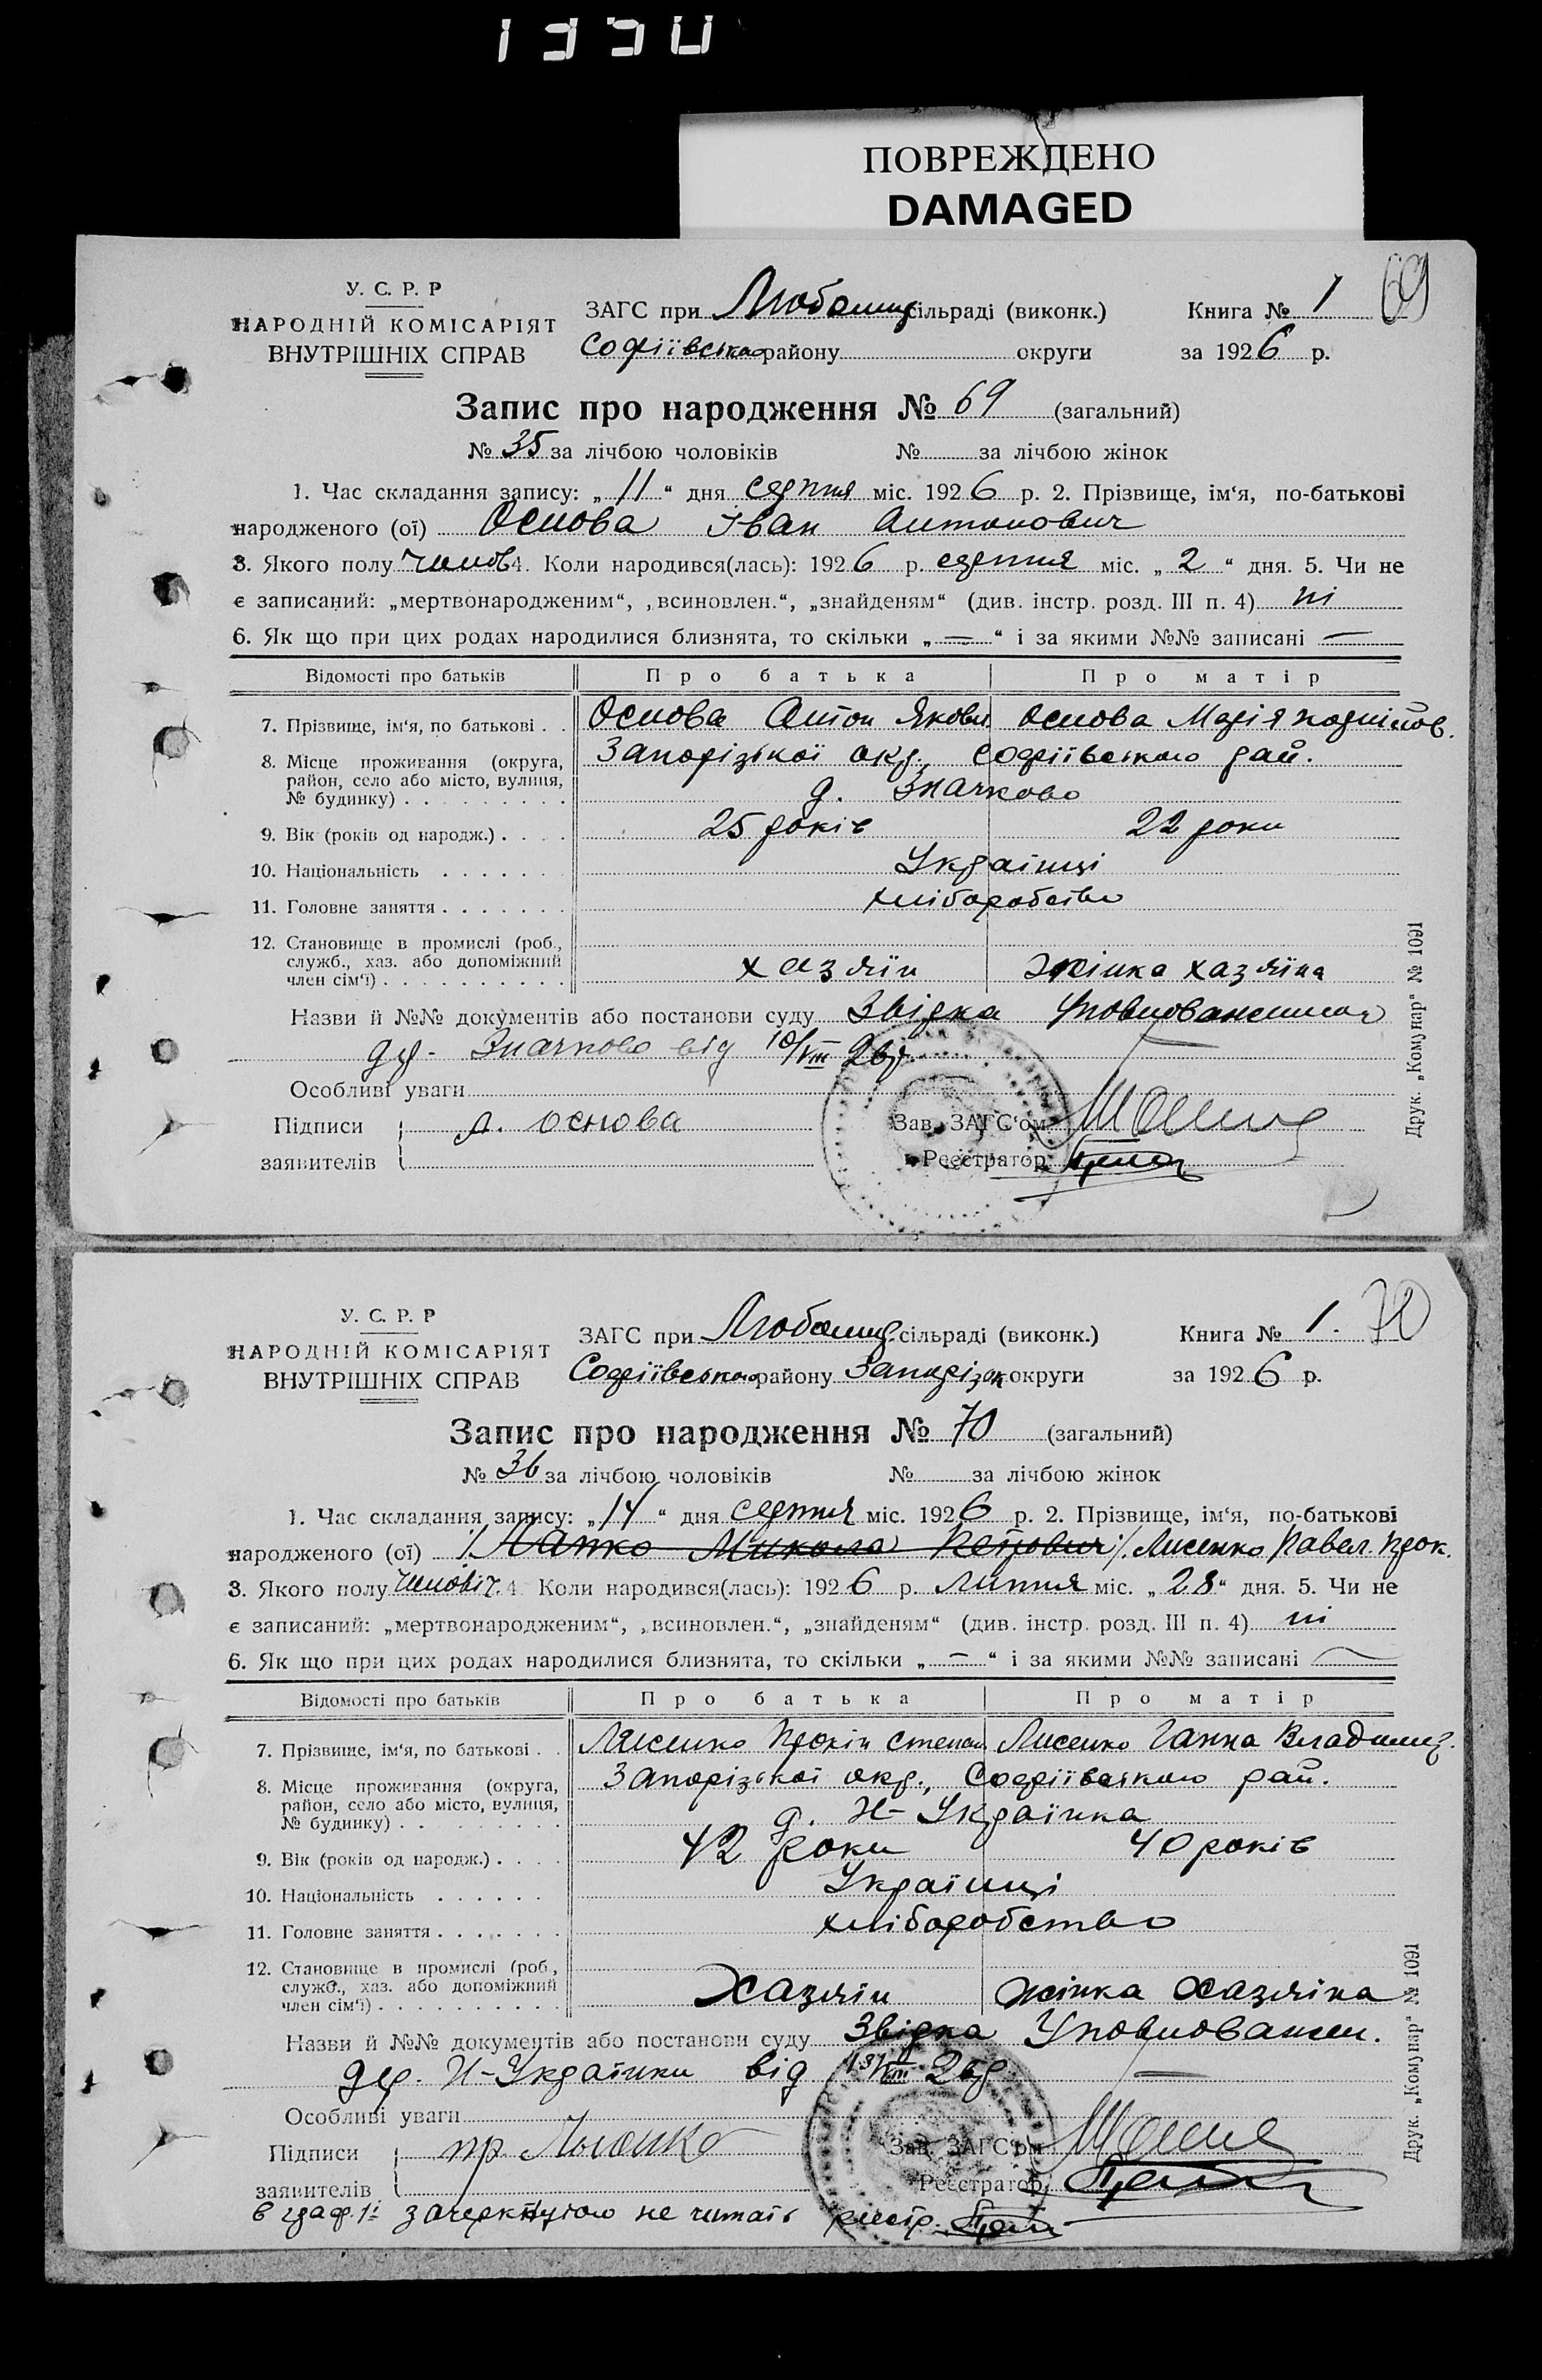 1990
ПОВРЕЖДЕНО
DAMAGED
У. С. Р. Р
НАРОДНІЙ КОМІСАРІЯТ
ВНУТРІШНІХ СПРАВ
ЗАГС при Любомир сільраді (виконк.) Книга № 1 69
Софіївського району округи за 1926 р.
Запис про народження № 69 (загальний)
№ 35 за лічбою чоловіків № за лічбою жінок
1. Час складання запису: „11“ дня серпня міс. 1926 р. 2. Прізвище, ім‘я, по-батькові
народженого (ої) Основа Іван Антонович
3. Якого полу чолов 4. Коли народився(лась): 1926 р. серпня міс. „2“ дня. 5. Чи не
є записаний: „мертвонародженим“, „всиновлен.“, „знайденям“ (див. інстр. розд. III п. 4) ні
6. Як що при цих родах народилися близнята, то скільки „—“ і за якими №№ записані —
Відомості про батьків Про батька Про матір
7. Прізвище, ім‘я, по батькові . . Основа Антон Якович Основа Марія
8. Місце проживання (округа, район, село або місто, вулиця, № будинку) Запорізької окр., Софіївського рай.
д. Значково
9. Вік (років од народж.) . . . . 25 років 22 роки
10. Національність Українці
11. Головне заняття хліборобство
12. Становище в промислі (роб., служб., хаз. або допоміжний член сім‘ї) хазяїн жінка хазяїна
Назви й №№ документів або постанови суду Звідка Уповноваженного
дер. Значково від 10/VIII 26р.
Особливі уваги
Підписи А. Основа Зав. ЗАГС‘ом
заявителів Реєстратор
Друк. „Комунар“ № 1091
У. С. Р. Р
НАРОДНІЙ КОМІСАРІЯТ
ВНУТРІШНІХ СПРАВ
ЗАГС при Любомир. сільраді (виконк.) Книга № 1. 70
Софіївського району Запорізьк округи за 1926 р.
Запис про народження № 70 (загальний)
№ 36 за лічбою чоловіків № за лічбою жінок
1. Час складання запису: „14“ дня серпня міс. 1926 р. 2. Прізвище, ім‘я, по-батькові
народженого (ої) /Лапко Микола Петрович/. Лисенко Павел. Прок.
3. Якого полу чоловіч. 4. Коли народився(лась): 1926 р. Липня міс. „28“ дня. 5. Чи не
є записаний: „мертвонародженим“, „всиновлен.“, „знайденям“ (див. інстр. розд. III п. 4) ні
6. Як що при цих родах народилися близнята, то скільки „—“ і за якими №№ записані —
Відомості про батьків Про батька Про матір
7. Прізвище, ім‘я, по батькові . . Лисенко Прокіп Степан Лисенко Ганна Владимир.
8. Місце проживання (округа, район, село або місто, вулиця, № будинку) Запорізької окр., Софіївського рай.
д. Н-Українка
9. Вік (років од народж.) . . . . 42 роки 40 років
10. Національність Українці
11. Головне заняття хліборобство
12. Становище в промислі (роб., служб., хаз. або допоміжний член сім‘ї) Хазяїн жінка хазяїна
Назви й №№ документів або постанови суду Звідка Уповноважен.
дер. Н-Українки від 13/VIII 26р
Особливі уваги
Підписи пр Лысенко Зав. ЗАГС‘ом
заявителів Реєстратор
в граф. 1й зачеркнутого не читать реєстр.
Друк. „Комунар“ № 1091